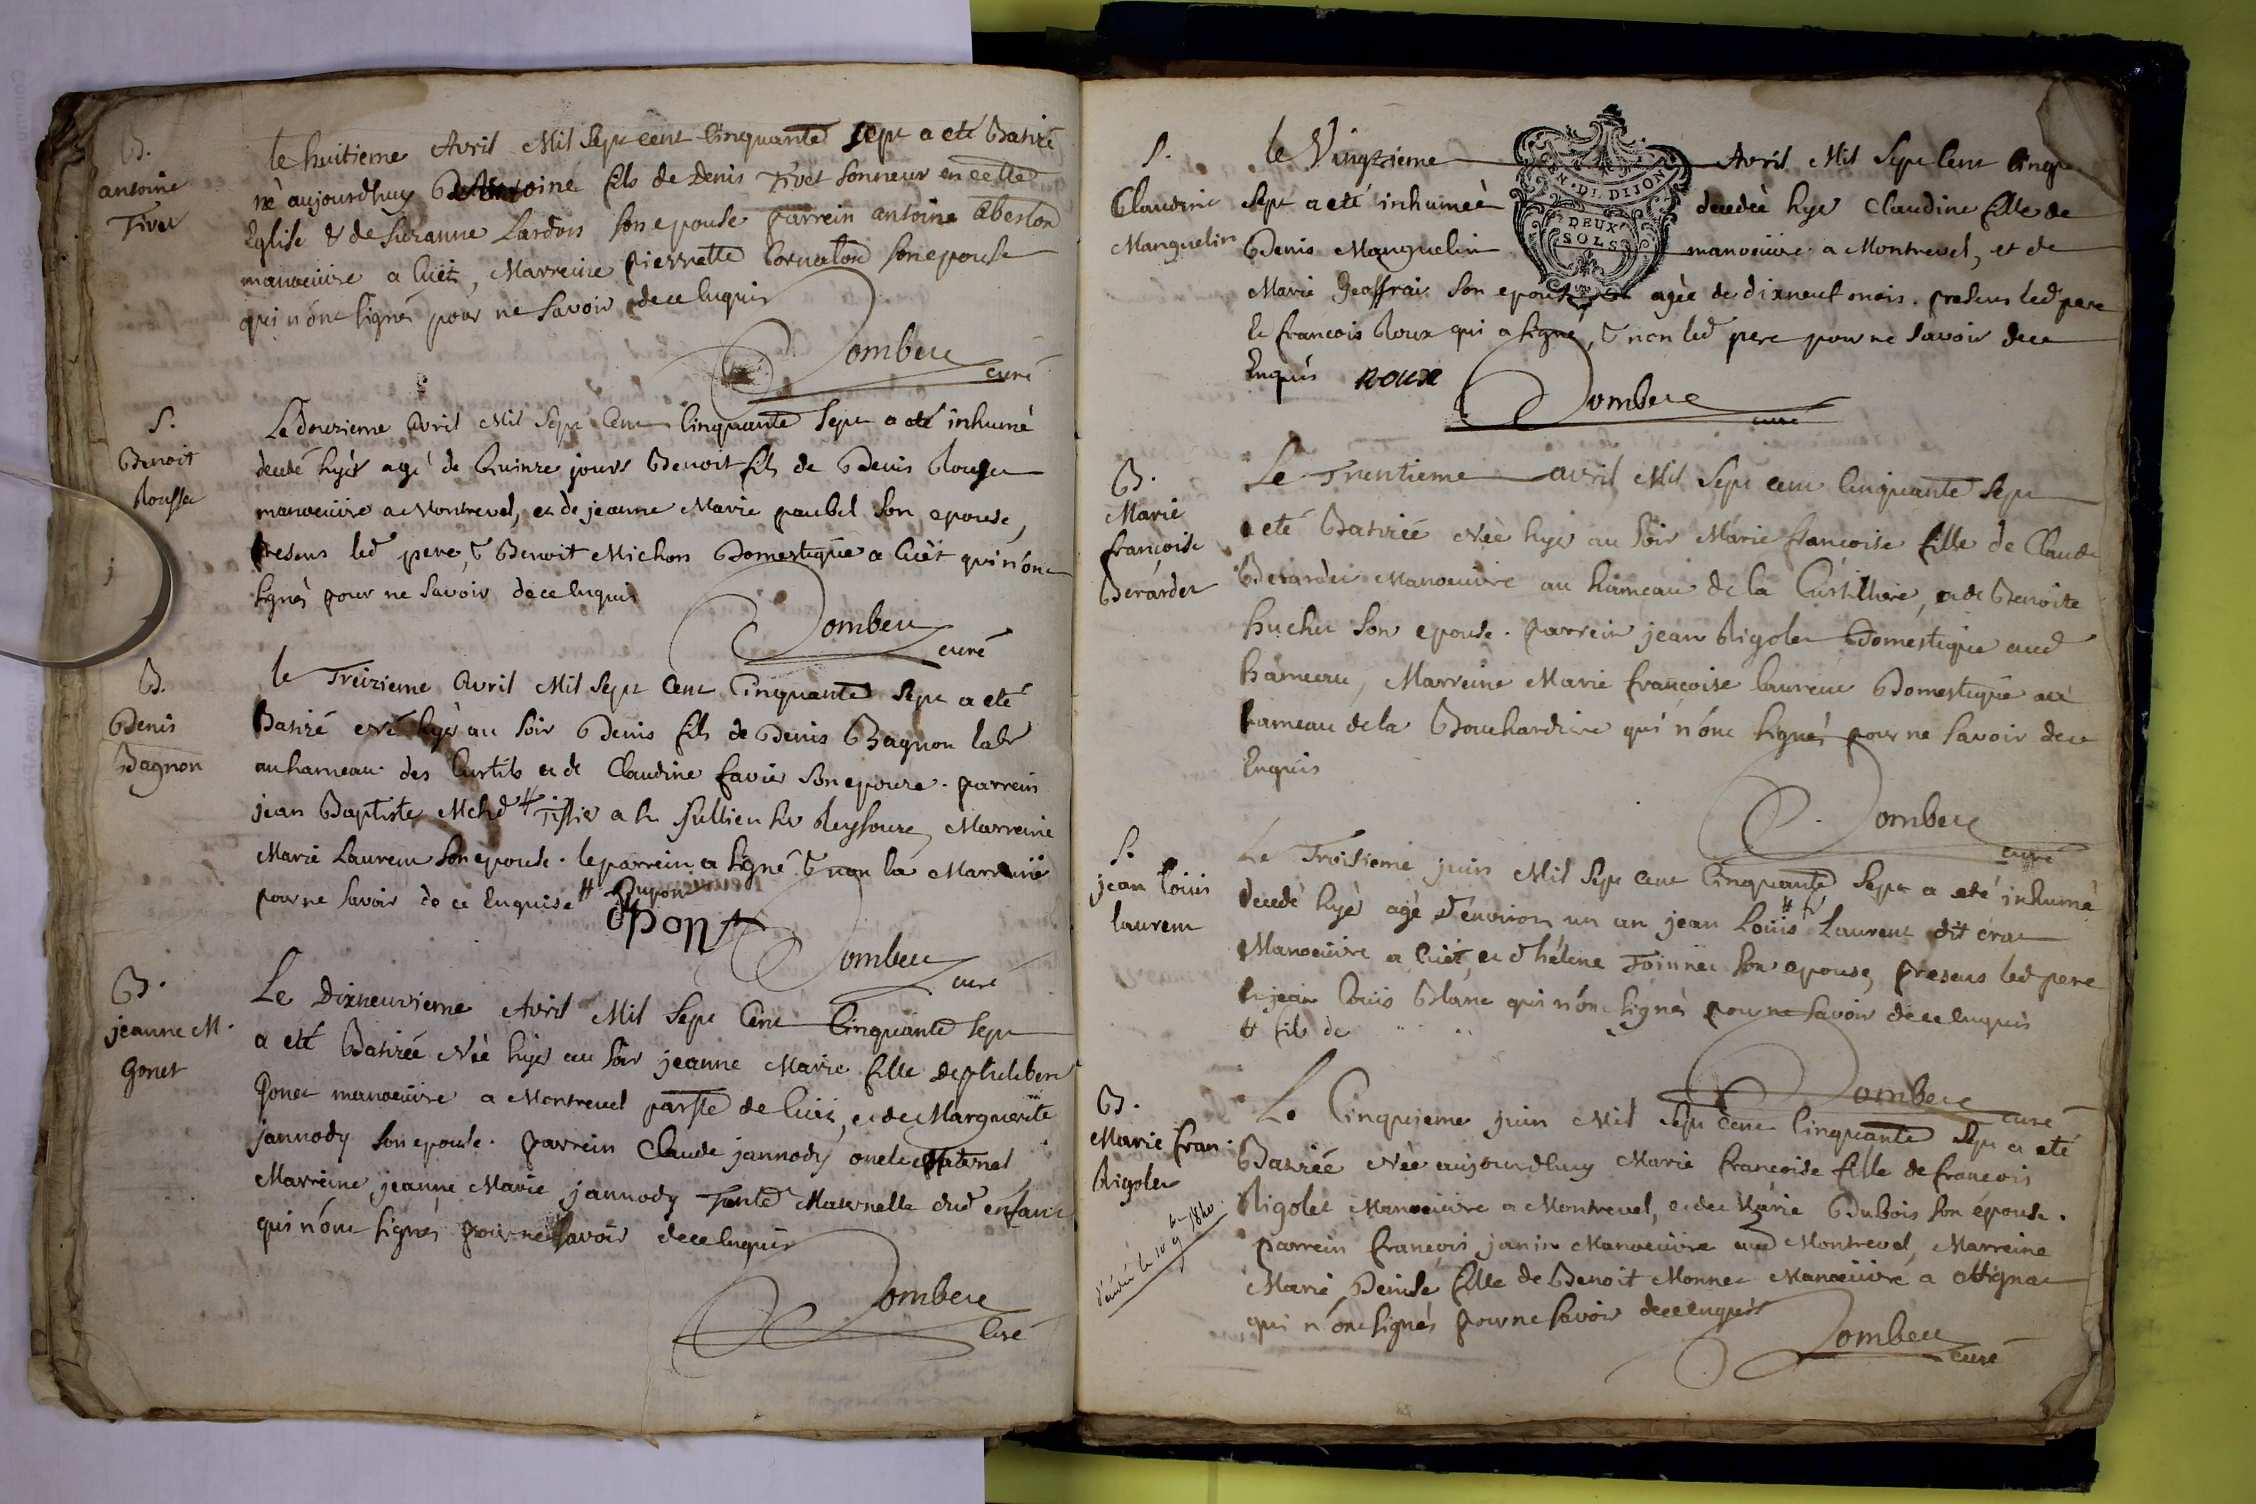 B.
antoine
Tivet
le huitieme Avril Mil Sept cent Cinquante Sept a eté Batizé
né aujourdhuy antoine fils de Denis Tivet sonneur en cette
Eglise & de Suzanne Lardon son epouse parrein antoine
manoeuvre a Cuët, Marreine pierrette son epouse
qui n'ont signés pour ne savoir de ce Enquis
Dombey
curé
S.
Benoit
Rousset
Le Douzieme avril Mil Sept Cent Cinquante Sept a eté inhumé
decedé hyer agé de Quinze jours Benoit fils de Denis
manoeuvre a Montrevel, et de jeanne Marie paubel son epouse,
presens led pere, & Benoit Michon Domestique a Cuët qui n'ont
signés pour ne savoir de ce Enquis
Dombey
curé
B.
Denis
Bagnon
le Treizieme Avril Mil Sept Cent Cinquante Sept a eté
Batizé né hyer au soir Denis fils de Denis Bagnon labr
au hameau des Curtils et de Claudine favier son epouse. parrein
jean Baptiste Mchd # Tissier a St jullien sur Reyssouze, Marreine
Marie Laurent son epouse. le parrein a signé & non la Marreine
pour ne savoir de ce Enquise # Dupont
dpont
Dombey
curé
B.
jeanne M.
Gonet
Le Dixneuvieme Avril Mil Sept Cent Cinquante Sept
a eté Batizée Née hyer au soir jeanne Marie fille de philibert
Gonet manoeuvre a Montrevel parsse de Cuët, et de Marguerite
jannody son epouse. parrein Claude jannody oncle Maternel
Marreine jeanne Marie jannody Tante Maternelle dud enfant
qui n'ont signés pour ne savoir de ce Enquis
Dombey
Curé
S.
Claudine
Manguelin
le Vingtieme Avril Mil Sept Cent Cinqu
GEN. DE DIJON
DEUX
SOLS
Sept a eté inhumeé decedeé hyer Claudine fille de
Denis Manguelin manoeuvre a Montrevel, et de
Marie Geoffrai son epouse agée de dixneuf mois. presens led pere
et francois Roux qui a signé, & non led pere pour ne savoir de ce
Enquis Roux
Dombey
curé
B.
Marie
françoise
Berardet
Le Trentieme avril Mil Sept cent Cinquante Sept
a eté Batizée Née hyer au soir Marie francoise fille de Claude
Berardet Manoeuvre au hameau de la Curtilliere, et de Benoite
huchet son epouse. parrein jean Rigolet Domestique aud
hameau, Marreine Marie françoise laurent Domestique au
hameau de la Bouchardiere qui n'ont signés pour ne savoir de ce
Enquis
Dombey
curé
S.
jean loüis
laurent
Le Troisieme juin Mil Sept Cent Cinquante Sept a eté inhumé
decedé hyer agé d'environ un an jean Loüis # Laurent dit
Manoeuvre a Cuët, et d'hélene Toinnet son epouse, presens led pere
et jean Louis Blanc qui n'ont signés pour ne savoir de ce Enquis
# fils de
Dombey
curé
B.
Marie fran.
Rigolet
décédée le 10 9bre 1840
Le Cinquieme juin Mil Sept Cent Cinquante Sept a eté
Batizéé Née aujourdhuy Marie françoise fille de francois
Rigolet Manoeuvre a Montrevel, et de Marie Dubois son épouse.
parrein françois janin Manoeuvre aud Montrevel, Marreine
Marie Denise fille de Benoit Monnet Manoeuvre a attignat
qui n'ont signés pour ne savoir de ce Enquis
Dombey
curé